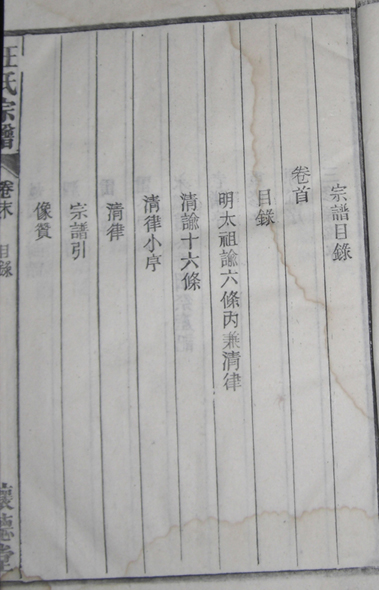 宗譜目錄
卷首
目錄
明太祖諭六條內兼清律
清諭十六條
清律小序
清律
宗譜引
像贊
汪氏宗譜
卷末
目錄
懷德堂